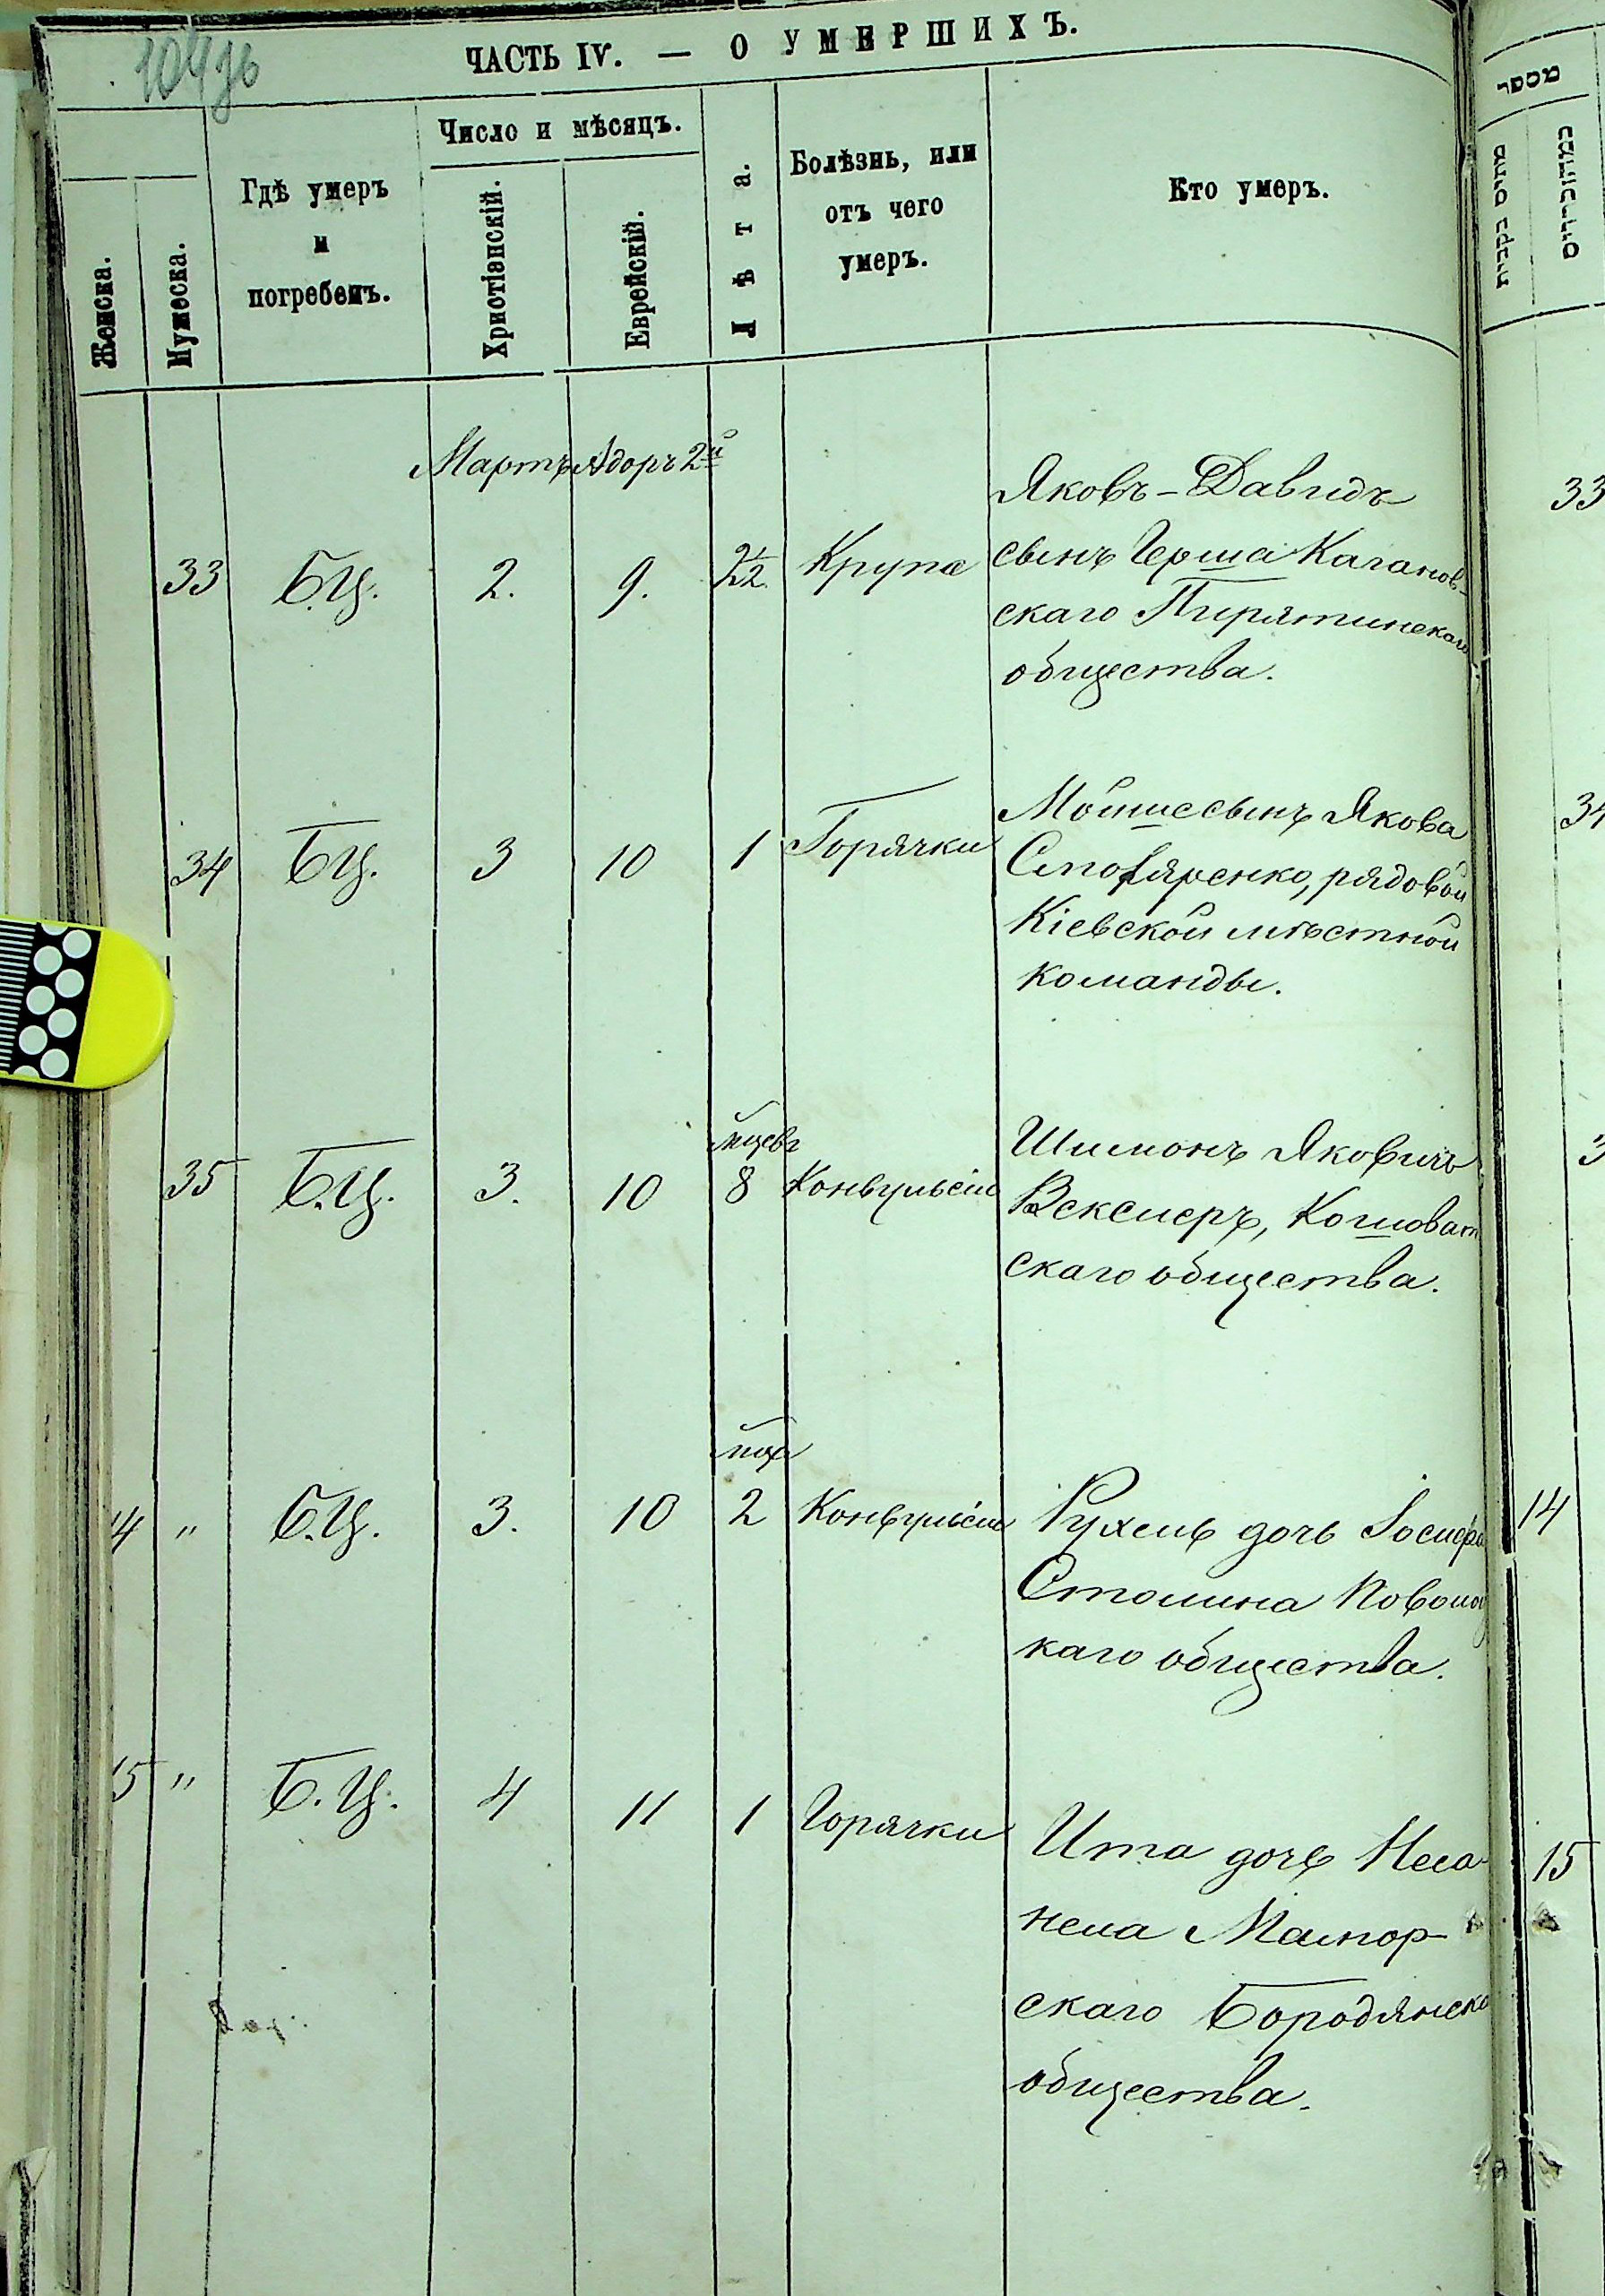 ЧАСТЬ IV. — О УМЕРШИХЪ.
Женска.
Мужеска.
Гдѣ умеръ
и
погребенъ.
Число и мѣсяцъ.
Христіенскій.
Еврейскій.
Лѣта.
Болѣзнь, или
отъ чего
умеръ.
Кто умеръ.
מספר
Мартъ Адоръ 2й
33 Б.Ц. 2. 9. 2½ Крупа
Яковъ-Давидъ
сынъ Герша Каганов-
скаго Пирятинскаго
общества.
33
34 БЦ. 3 10 1 Горячки
Мойше сынъ Якова
Столяренко, рядовой
Кіевской мѣстной
команды.
34
мцевъ
35 Б.Ц. 3. 10 8 Конвульсіи
Шимонъ Яковичъ
Векслеръ, Кошоват
скаго общества.
3
мца
4 " Б.Ц. 3. 10 2 Конвульсіи
Рухель дочь Іосифа
Столина Новомос
каго общества.
14
15 " Б.Ц. 4 11 1 Горячки
Ита дочь Неса-
нела Мамор-
скаго Бородянска
общества.
15